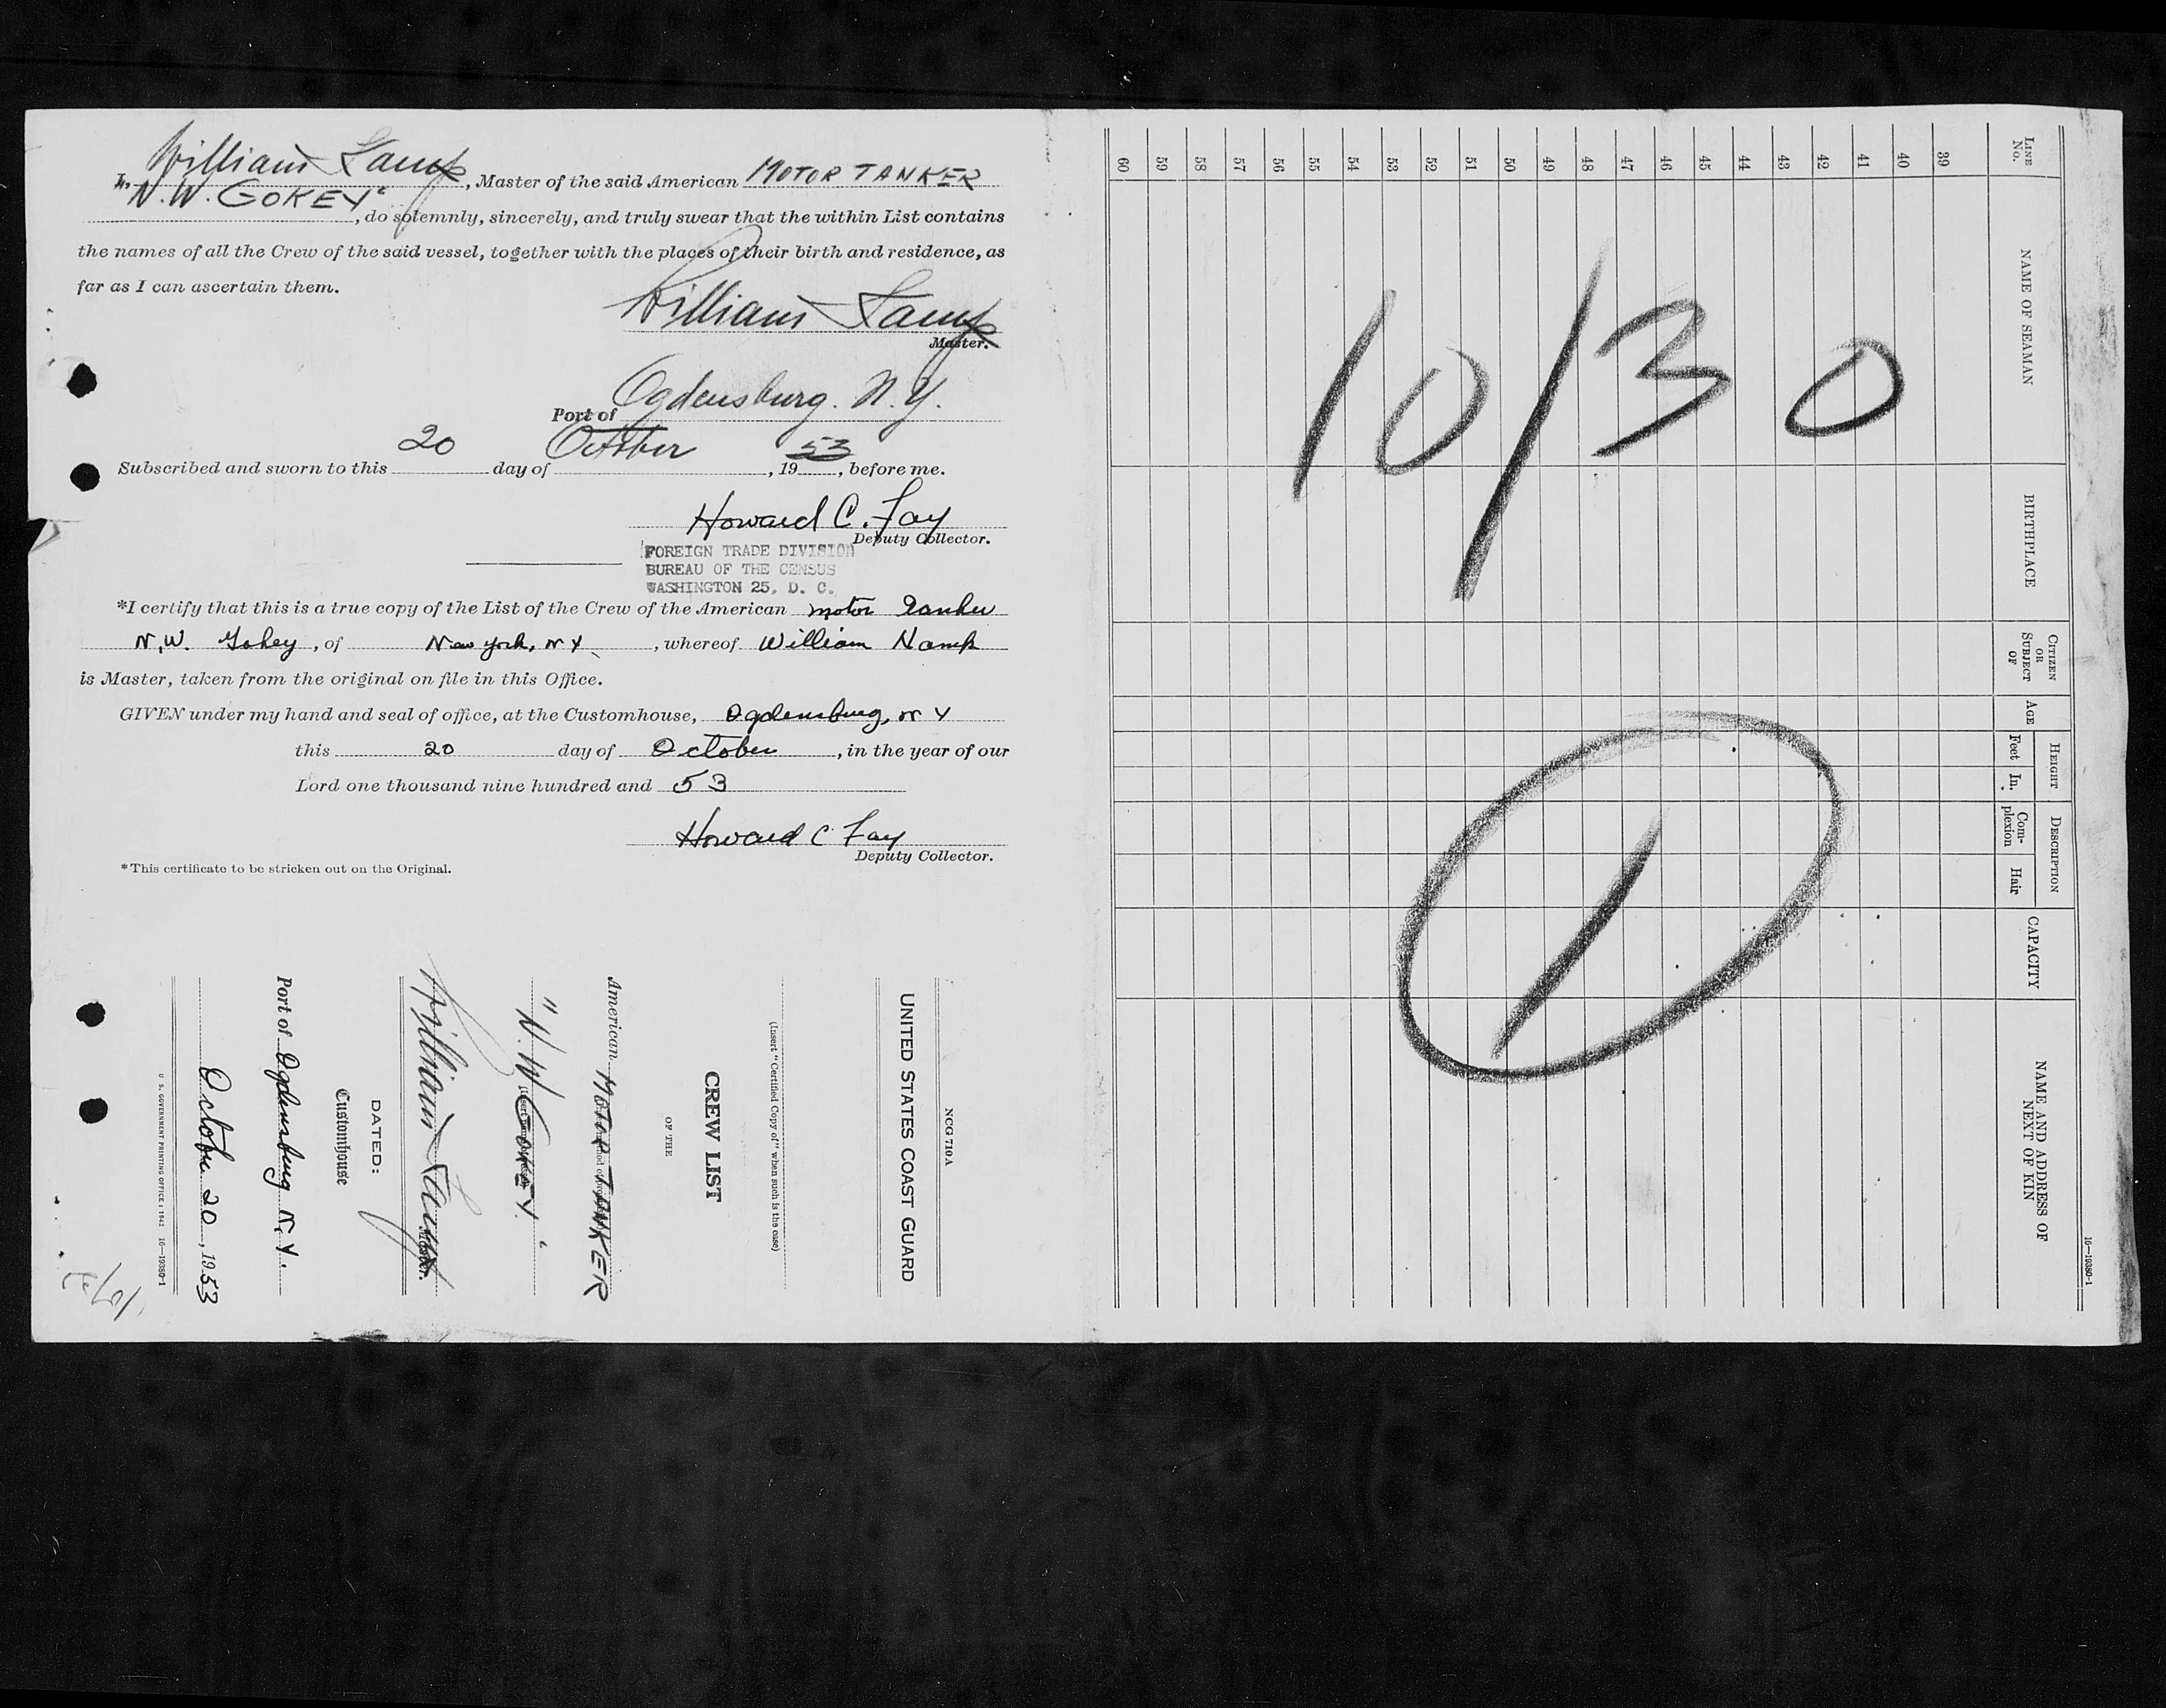 I, William , Master of the said American MOTOR TANKER
"N.W. GOKEY", do solemnly, sincerely, and truly swear that the within List contains
the names of all the Crew of the said vessel, together with the places of their birth and residence, as
far as I can ascertain them.
William
Master.
Port of Ogdensburg. N.Y.
Subscribed and sworn to this 20 day of October, 1953, before me.
Howard C. Fay
Deputy Collector.
FOREIGN TRADE DIVISION
BUREAU OF THE CENSUS
WASHINGTON 25, D. C.
*I certify that this is a true copy of the List of the Crew of the American motor tanker
N.W. Gokey, of New York, NY, whereof William
is Master, taken from the original on file in this Office.
GIVEN under my hand and seal of office, at the Customhouse, Ogdensburg, NY
this 20 day of October, in the year of our
Lord one thousand nine hundred and 53
Howard C Fay
Deputy Collector.
*This certificate to be stricken out on the Original.
NCG 710A
UNITED STATES COAST GUARD
(Insert "Certified Copy of" when such is the case)
CREW LIST
OF THE
American MOTOR TANKER
"N.W. GOKEY."
William
Master.
DATED:
Customhouse
Port of Ogdensburg N.Y.
October 20, 1953
U. S. GOVERNMENT PRINTING OFFICE: 1942 16—19380-1
16—19380-1
LINE No.
NAME OF SEAMAN
BIRTHPLACE
CITIZEN OR SUBJECT OF
AGE
HEIGHT
Feet
In.
DESCRIPTION
Complexion
Hair
CAPACITY
NAME AND ADDRESS OF NEXT OF KIN
39
40
41
42
43
44
45
46
47
48
49
50
51
52
53
54
55
56
57
58
59
60
10/30
1